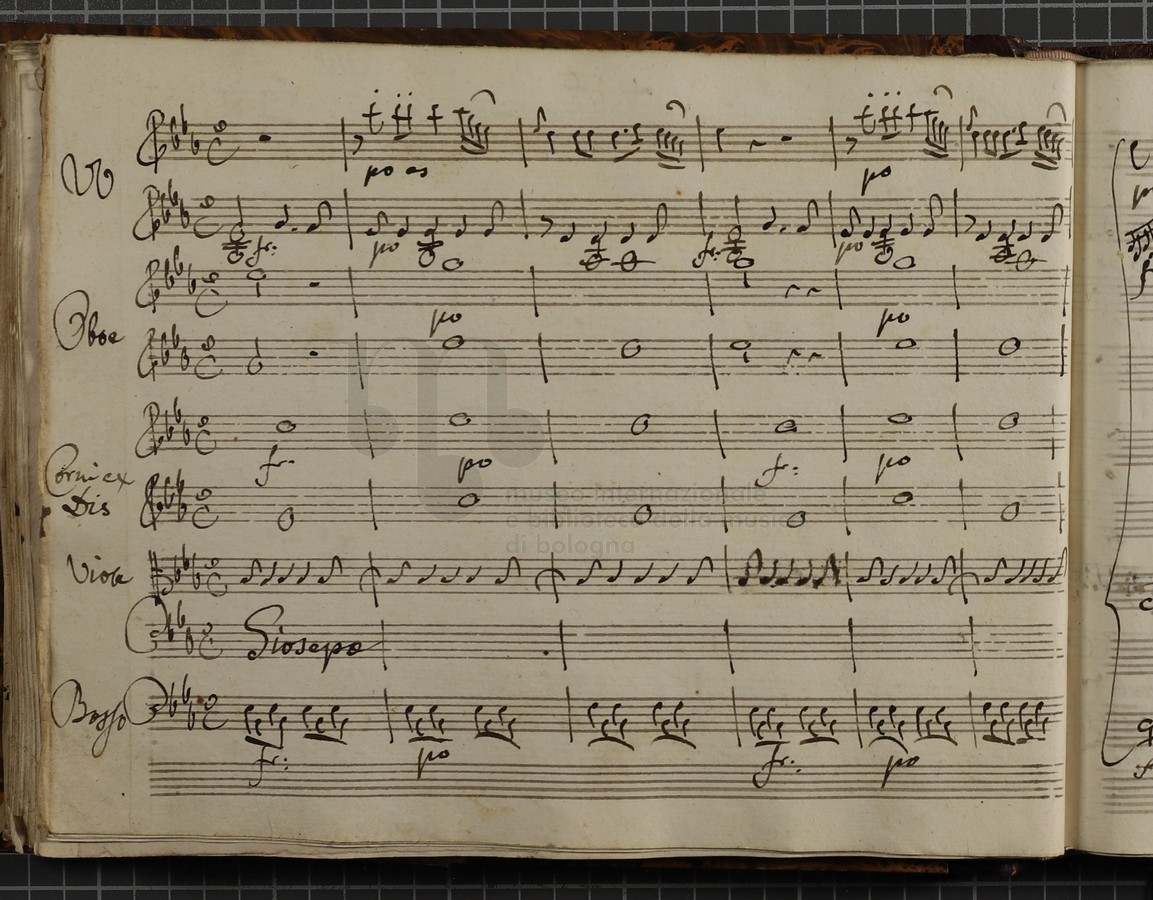 VV
po as
po
fr:
po
fr:
po
Oboe
po
po
Corni ex
Dis
fr:
po
fr:
po
museo internazionale
e biblioteca della musica
di bologna
Viole
Giosepo
Basso
fr:
po
fr:
po